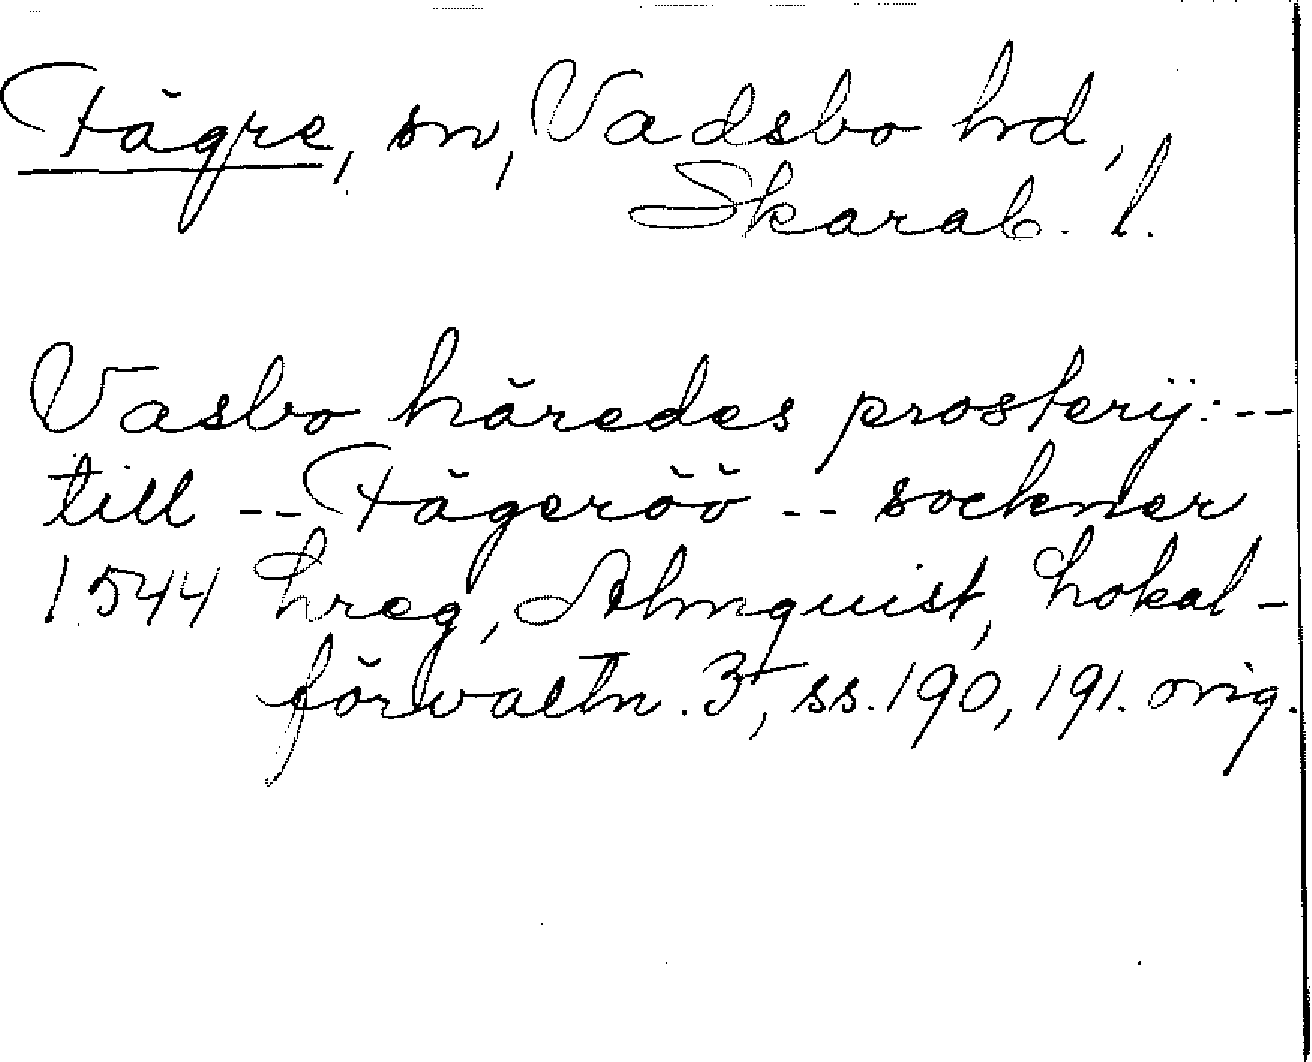 Fägre, sn, Vadsbo hd,
Skarab. l.
Vasbo häredes prosterÿ: --
till -- Fägeröö -- sockner
1544 Lreg, Almquist, Lokal-
förvaltn. 3, ss. 190, 191. orig.